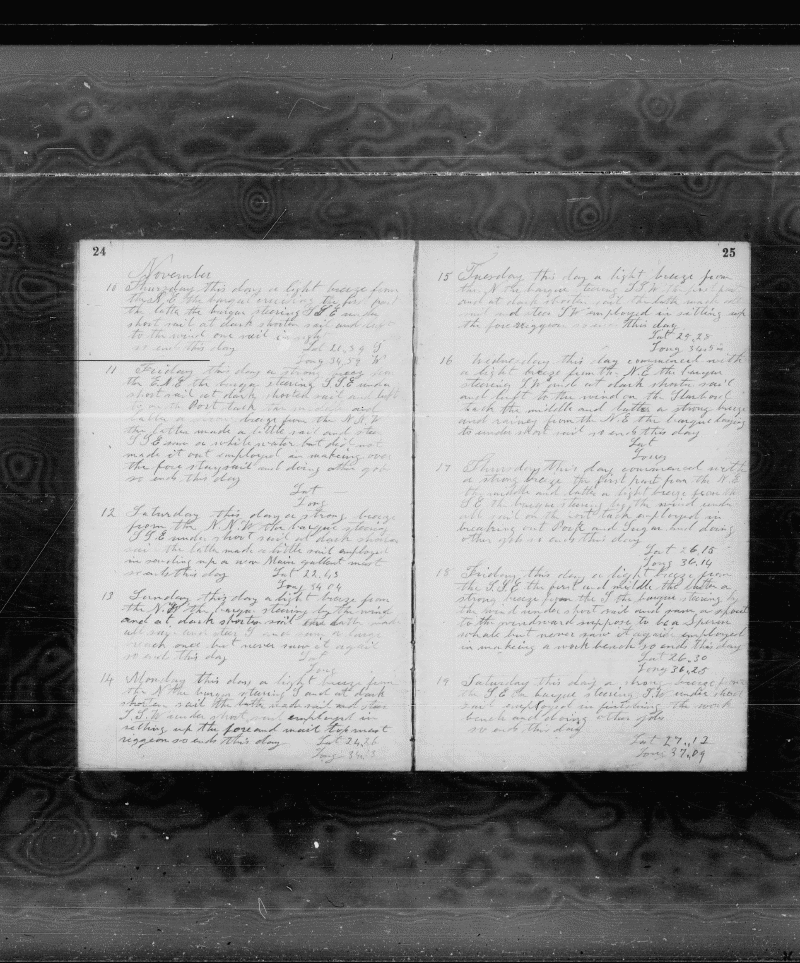 24
November
10 Thursday this day a light breeze from
the N.E the barque steering the first part
the latter the barque steering S S E under
short sail at dark shorten sail and
to the wind one sail in sight
so ends this day Lat 21,39 S
Long 34,59 W
11 Friday this day a strong breeze from
the E.N.E the barque steering S.S.E under
short sail at dark shorted sail and luft
by on the Port tack the middle and
latter a breeze from the N.N.W
the latter made a little sail and steer
S.S.E saw a white water but did not
made it out employed in makeing over
the fore staysail and doing other gob
so ends this day
Lat
Long
12 Saturday this day a strong breeze
from the N.N.W the barque steering
S.S.E under short sail at dark shorten
sail the latter made a little sail employed
in sending up a new Main gallent mast
so ends this day Lat 22,43
Long 34,04
13 Sunday this day a light breeze from
the N.W the barque steering by the wind
and at dark shorten sail the latter made
all sail and steer S and saw a large
breach once but never saw it again
so ends this day
Long
14 Monday this day a light breeze from
the N the barque steering S and at dark
shorten sail the latter made sail and steer
S.S.W under short sail employed in
setting up the fore and main topmast
riggeon so ends this day Lat 24,16
Long
25
15 Tuesday this day a light breeze from
the N the barque steering S.S.W the first part
and at dark shorten sail the latter made all
sail and steer SW employed in setting up
the fore riggeon so ends this day
Lat 25,25
Long
16 Wednesday this day commenced with
a light breeze from the N.E the barque
steering SW and at dark shorte sail
and luft to the wind on the Starbord
tack the middle and latter a strong breeze
and rainey from the N.E the barque laying
to under short sail so ends this day
Lat
Long
17 Thursday this day commenced with
a strong breeze the first part from the N.E
the middle and latter a light breeze from the
S.E the barque steering by the wind under
all sail on the Port tack employed in
breaking out Pork and Sugar and doing
other gob so ends this day
Lat 26,15
Long 36,14
18 Friday this day a light breeze from
the S.S.E the first and middle the latter a
strong breeze from the S the barque steering by
the wind under short sail and saw a spout
to the windward suppose to be a Sperm
whale but never saw it again employed
in makeing a work bench so ends this day
Lat 26,30
Long 36,25
19 Saturday this day a strong breeze from
the S E the barque steering S.W under short
sail employed in finishing the work
bench and doing other gobs
so ends this day
Lat 27,12
Long 37,09